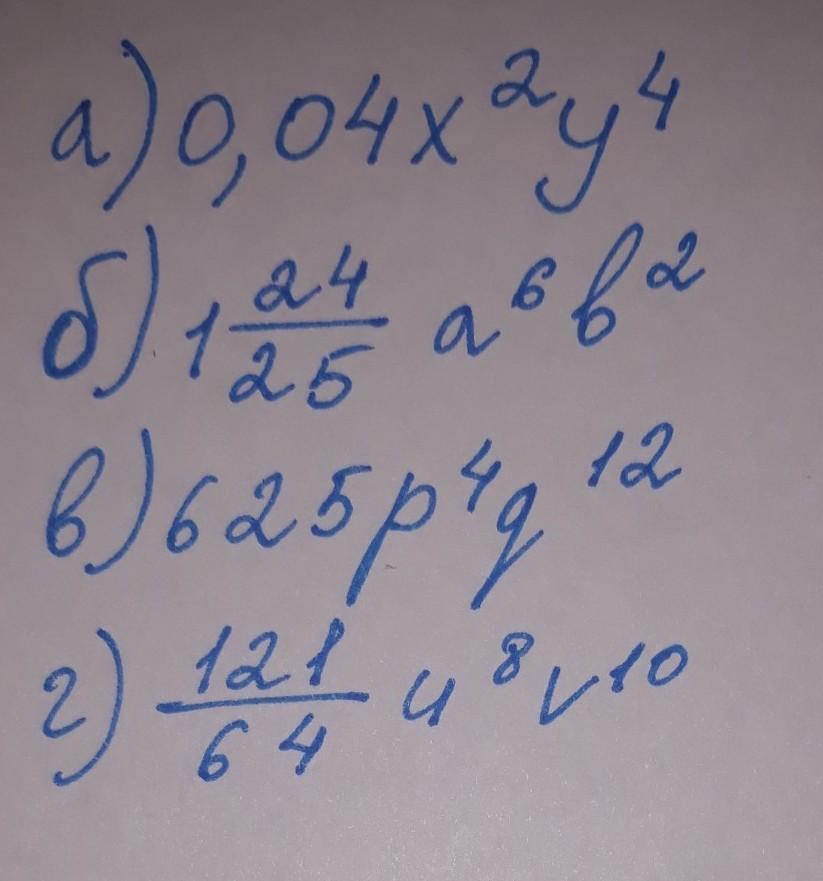 а) 0,04x²y⁴
б) 1 24/25 a⁶b²
в) 625p⁴q¹²
г) 121/64 u⁸v¹⁰